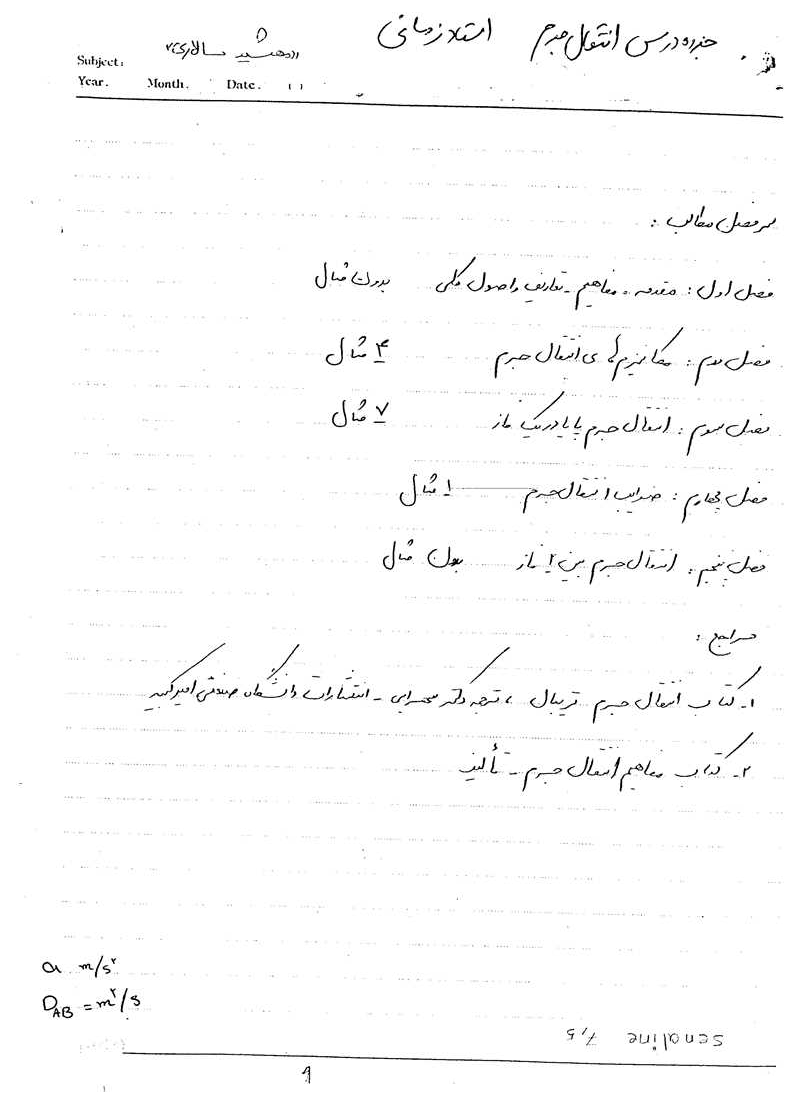 جزوه درس انتقال جرم استاد زمانی
سالاری
Subject:
Year. Month. Date. ( )
سرفصل مطالب :
فصل اول : مقدمه - مفاهیم - تعاریف و اصول کلی بدون مثال
فصل دوم : مکانیزم های انتقال جرم ۴ مثال
فصل سوم : انتقال جرم پایا در یک فاز ۷ مثال
فصل چهارم : ضرایب انتقال جرم ۱ مثال
فصل پنجم : انتقال جرم بین ۲ فاز بدون مثال
مراجع :
۱- کتاب انتقال جرم تریبال ، ترجمه دکتر سهرابی - انتشارات دانشگاه صنعتی امیرکبیر
۲- کتاب مفاهیم انتقال جرم - تألیف
a m/s²
D_AB = m²/s
senaline 7,5
1